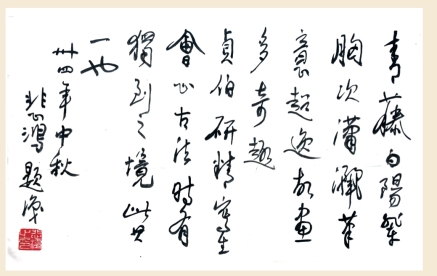 青藤白陽輩
胸次瀟灑筆
意超逸故畫
多奇趣
貞伯研精寫生
會心古法時有
獨到之境此其
一也
卅四年中秋
悲鴻題